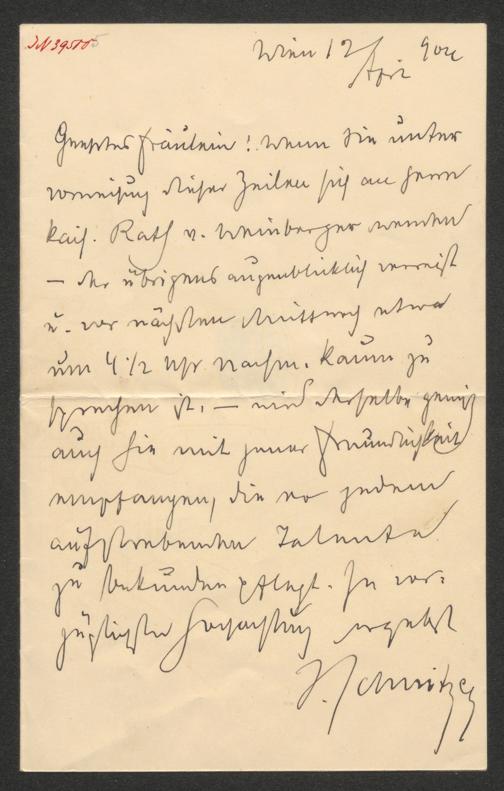 JN 39510
Wien 12 April 904
Geehrtes Fräulein! Wenn Sie unter
Vorweisung dieser Zeilen sich an Herrn
kais. Rath v. Weinberger wenden
— der übrigens augenblicklich verreist
u. vor nächsten Mittwoch etwa
um 4 1/2 Uhr nachm. kaum zu
sprechen ist, — wird derselbe gewiß
auch Sie mit jener Freundlichkeit
empfangen, die er jedem
aufstrebenden Talente
zu bekunden pflegt. In vor-
züglichster Hochachtung ergebst
J. Schnitzer